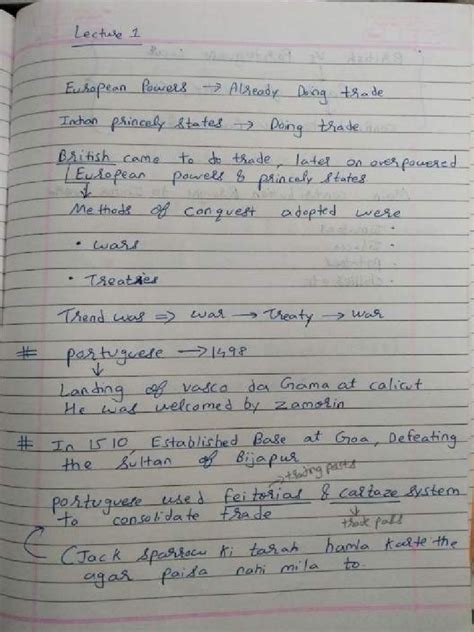 Lecture 1
European Powers → Already Doing trade
Indian princely states → Doing trade
British came to do trade, later on overpowered
European powers & princely states
Methods of conquest adopted were
• wars
• Treaties
Trend was ⇒ war → Treaty → war
# portuguese → 1498
Landing of vasco da Gama at calicut
He was welcomed by zamorin
# In 1510, Established Base at Goa, Defeating
the sultan of Bijapur
trading posts
portuguese used feitorias & cartaze system
to consolidate trade
trade pass
(Jack sparrow ki tarah hamla karte the
agar paisa nahi mila to.